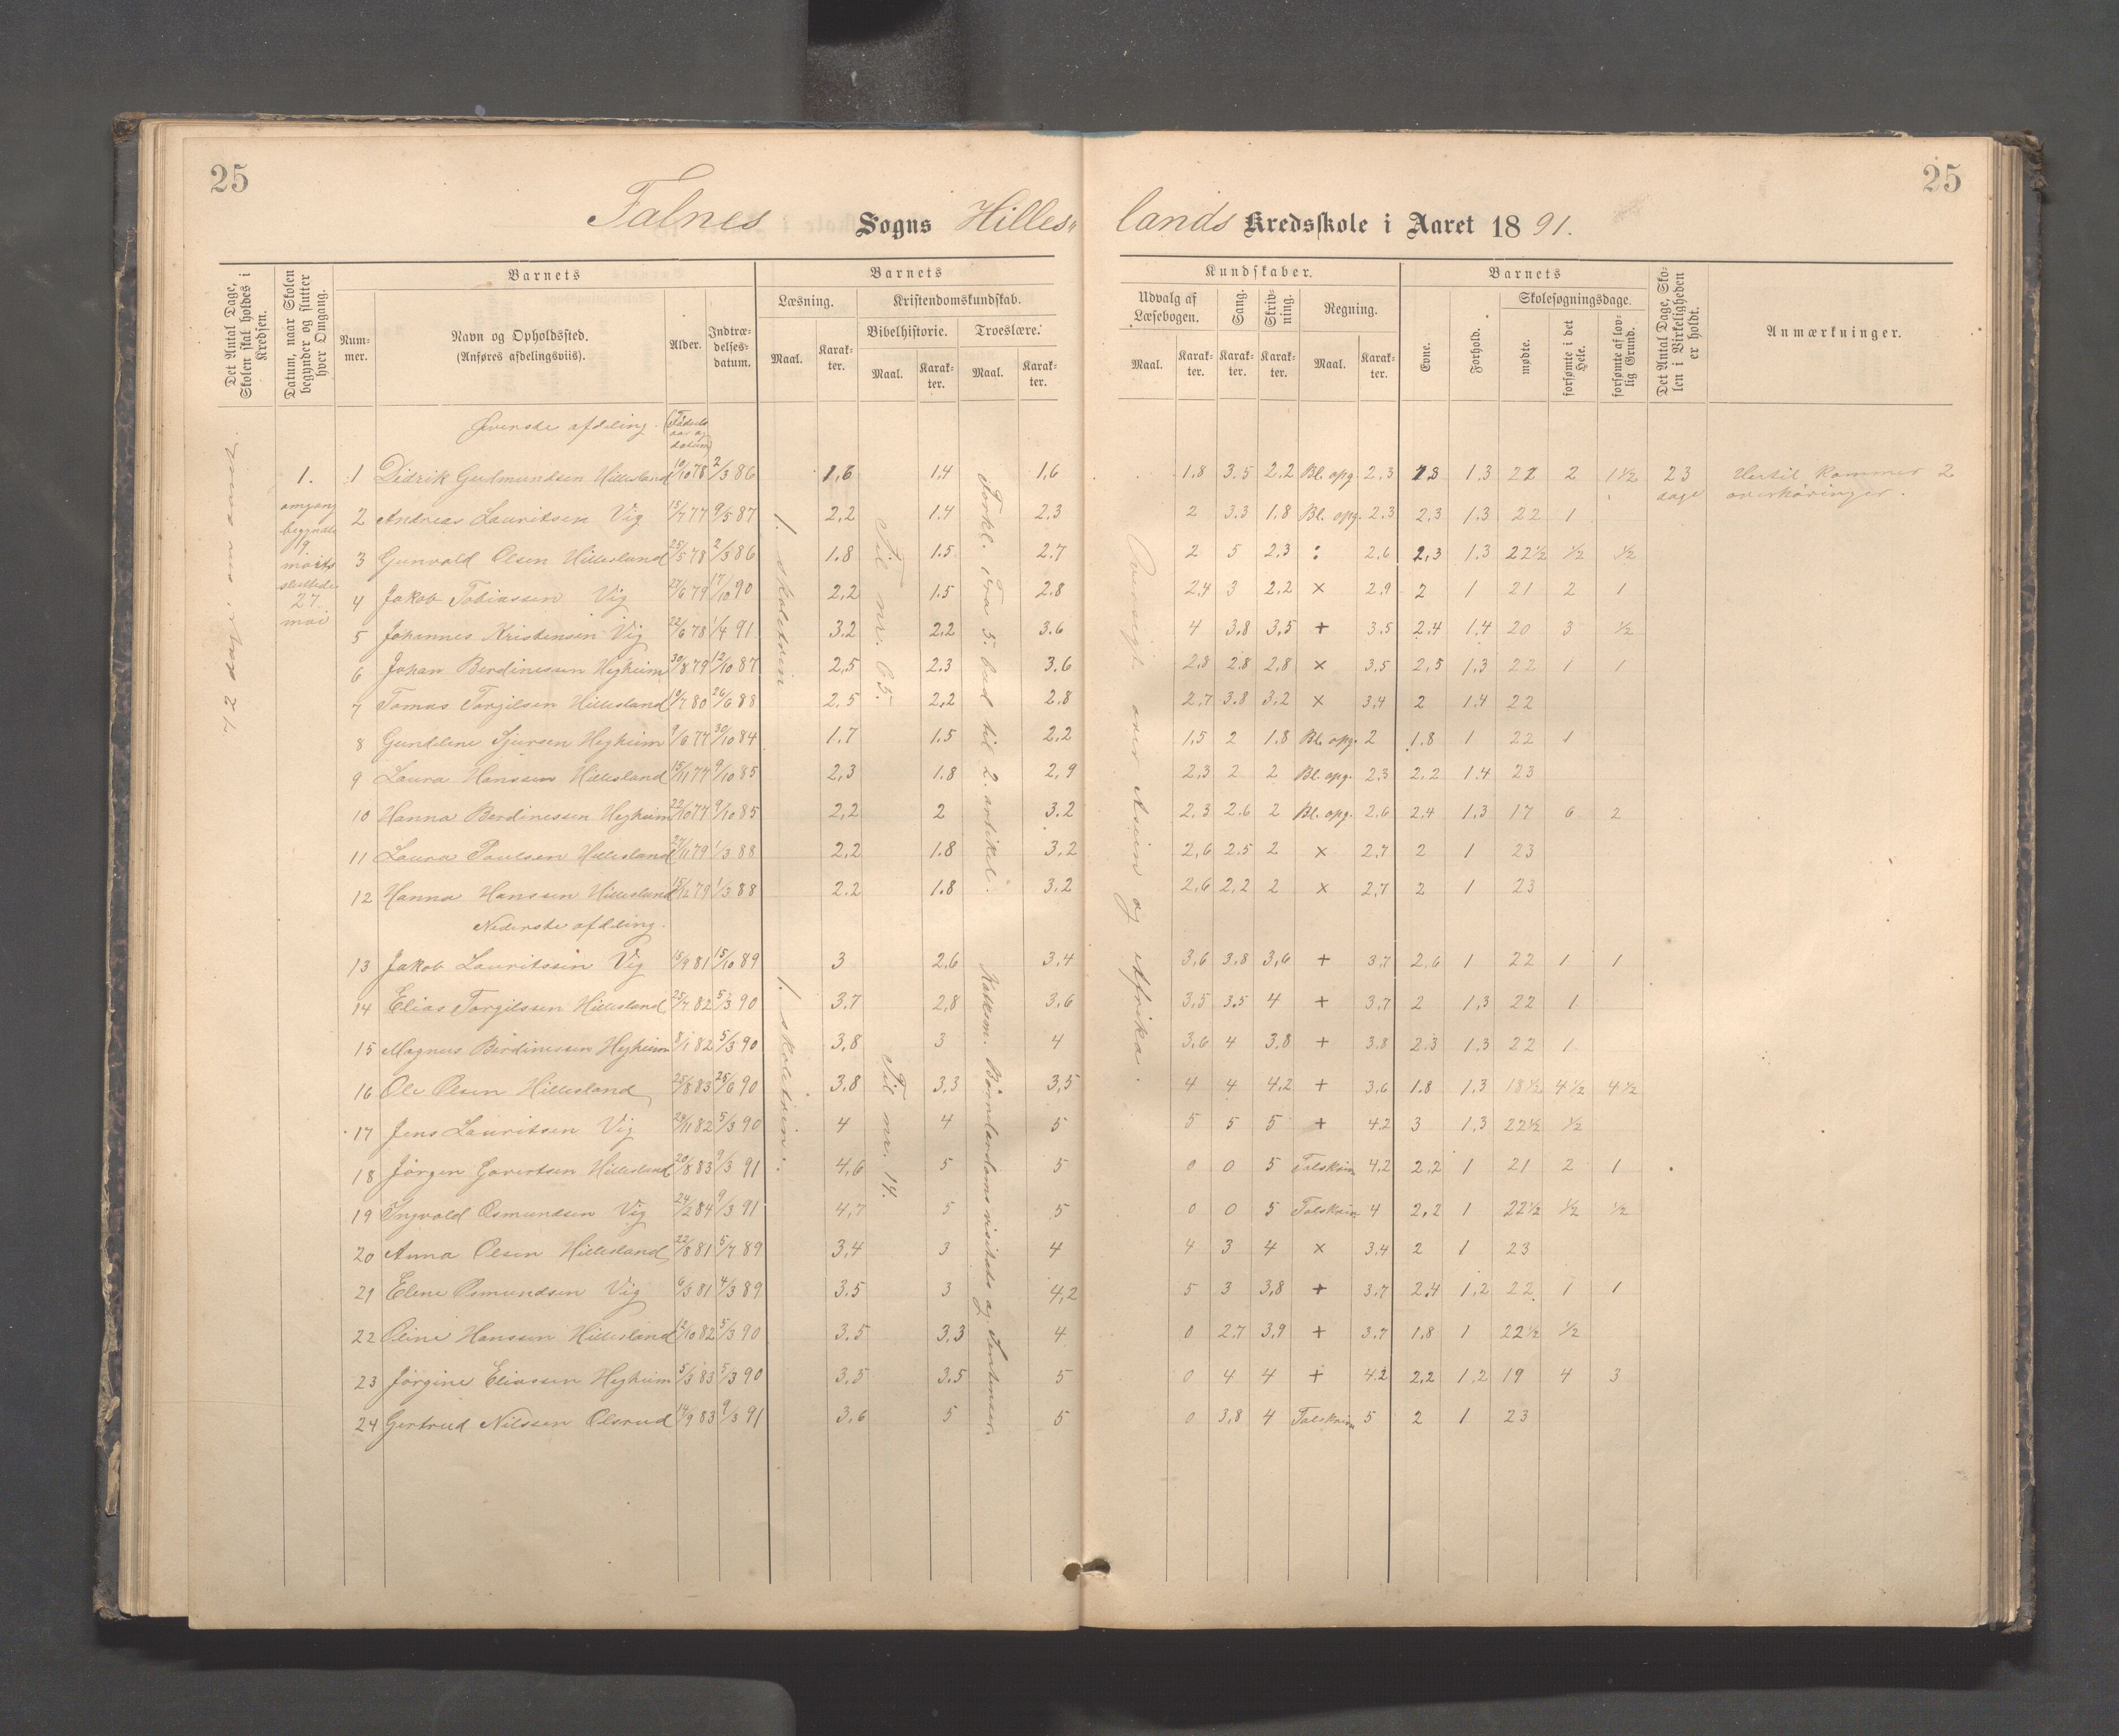 25
25
Falnes Sogns Hilles„
lands Kredsskole i Aaret 1891.
Det Antal Dage, Skolen skal holdes i Kredsen.
Datum, naar Skolen begynder og slutter hver Omgang.
Barnets
Num-mer.
Navn og Opholdssted.
(Anføres afdelingsviis).
Alder.
Indtræ-delses-datum.
Barnets
Læsning.
Maal.
Karak-ter.
Kristendomskundskab.
Bibelhistorie.
Maal.
Karak-ter.
Troeslære.
Maal.
Karak-ter.
Kundskaber.
Udvalg af Læsebogen.
Maal.
Karak-ter.
Sang.
Karak-ter.
Skriv-ning.
Karak-ter.
Regning.
Maal.
Karak-ter.
Barnets
Evne.
Forhold.
Skolesøgningsdage.
mødte.
forsømte i det Hele.
forsømte af lov-lig Grund.
Det Antal Dage, Sko-len i Virkeligheden er holdt.
Anmærkninger.
Øverste afdeling. (Fødsels aar og datum)
1. omgang begynte 9 marts sluttede 27 mai
1. skoletrin
Til nr. 65.
Forkl. fra 5. bud til 2. artikel.
Oversigt over Asien og Afrika.
1 Didrik Gudmundsen Hillesland 10/10 78 2/3 86 1,6 1,4 1,6 1,8 3.5 2.2 Bl. opg. 2,3 1,8 1.3 21 2 1½ 23 dage Hertil kommer 2 overhøringer.
2 Andreas Lauritsen Vig 15/7 77 9/5 87 2,2 1.4 2,3 2 3.3 1.8 Bl. opg. 2.3 2,3 1.3 22 1
3 Gunvald Olsen Hillesland 25/5 78 2/3 86 1.8 1.5 2.7 2 5 2,3 : 2,6 2,3 1.3 22½ ½ ½
4 Jakob Tobiassen Vig 27/6 79 17/10 90 2,2 1.5 2.8 2,4 3 2,2 × 2,9 2 1 21 2 1
5 Johannes Kristensen Vig 22/6 78 1/4 91 3.2 2,2 3.6 4 3,8 3,5 + 3.5 2.4 1.4 20 3 ½
6 Johan Berdinessen Hejheim 30/8 79 12/10 87 2,5 2.3 3.6 2,8 2.8 2,8 × 3,5 2,5 1,3 22 1 1
7 Tomas Torgilsen Hillesland 9/7 80 26/6 88 2,5 2,2 2.8 2,7 3.8 3,2 × 3,4 2 1.4 22
8 Gundline Sjursen Hejheim 9/6 77 30/10 84 1.7 1.5 2,2 1,5 2 1.8 Bl. opg. 2 1.8 1 22 1
9 Laura Hanssen Hillesland 15/11 77 9/10 85 2,3 1.8 2,9 2,3 2 2 Bl. opg. 2,3 2,2 1.4 23
10 Hanna Berdinessen Hejheim 22/10 77 9/10 85 2,2 2 3.2 2,3 2.6 2 Bl. opg. 2,6 2.4 1,3 17 6 2
11 Laura Paulsen Hillesland 27/11 79 1/3 88 2,2 1.8 3,2 2,6 2.5 2 × 2,7 2 1 23
12 Hanna Hanssen Hillesland 15/12 79 1/3 88 2.2 1.8 3,2 2,6 2,2 2 × 2,7 2 1 23
Nederste afdeling.
1. skoletrin.
Til nr. 14.
13 Jakob Lauritssen Vig 15/9 81 15/10 89 3 2,6 3,4 3,6 3,8 3,6 + 3,7 2,6 1 22 1 1
14 Elias Torgilssen Hillesland 25/7 82 5/3 90 3,7 2,8 3,6 3,5 3.5 4 + 3,7 2 1,3 22 1
15 Magnus Berdinessen Hejheim 8/1 82 5/3 90 3,8 3 4 3,6 4 3,8 + 3.8 2.3 1.3 22 1
16 Ole Olsen Hillesland 25/8 83 25/6 90 3,8 3,3 3,5 4 4 4,2 + 3,6 1.8 1,3 18½ 4½ 4½
17 Jens Lauritsen Vig 29/11 82 5/3 90 4 4 5 5 5 5 + 4,2 3 1,3 22½ ½
18 Jörgen Govertsen Hillesland 20/8 83 9/3 91 4,6 5 5 0 0 5 Talskriv. 4,2 2,2 1 21 2 1
19 Ingvald Osmundsen Vig 24/2 84 9/3 91 4,7 5 5 0 0 5 Talskriv. 4 2,2 1 22½ ½ ½
20 Anna Olsen Hillesland 22/8 81 5/7 89 3,4 3 4 4 3 4 × 3,4 2 1 23
21 Elene Osmundsen Vig 6/3 81 4/3 89 3.5 3 4,2 5 3 3,8 + 3,7 2,4 1,2 22 1 1
22 Oline Hanssen Hillesland 12/10 82 5/3 90 3,5 3,3 4 0 2,7 3,9 + 3,7 1,8 1 22½ ½
23 Jörgine Eliassen Hejheim 5/3 83 5/3 90 3,5 3.5 5 0 4 4 + 4.2 2,2 1,2 19 4 3
24 Gertrud Nilssen Olsrud 14/9 83 9/3 91 3,6 5 5 0 3,8 4 Talskriv 5 2 1 23